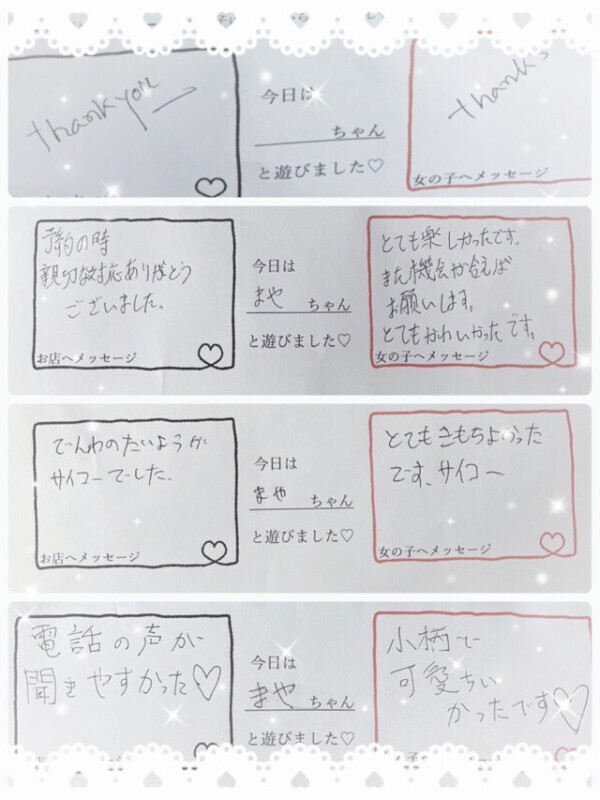 thank you
今日は
ちゃん
と遊びました♡
thanks
女の子へメッセージ
予約の時
親切な対応ありがとう
ございました。
お店へメッセージ
今日は
まや ちゃん
と遊びました♡
とても楽しかったです。
また機会が合えば
お願いします。
とてもかわいかったです。
女の子へメッセージ
でんわのたいようが
サイコーでした.
お店へメッセージ
今日は
まや ちゃん
と遊びました♡
とてもきもちよかった
です、サイコー
女の子へメッセージ
電話の声が
聞きやすかった♡
今日は
まや ちゃん
と遊びました♡
小柄で
可愛ちい
かったです♡